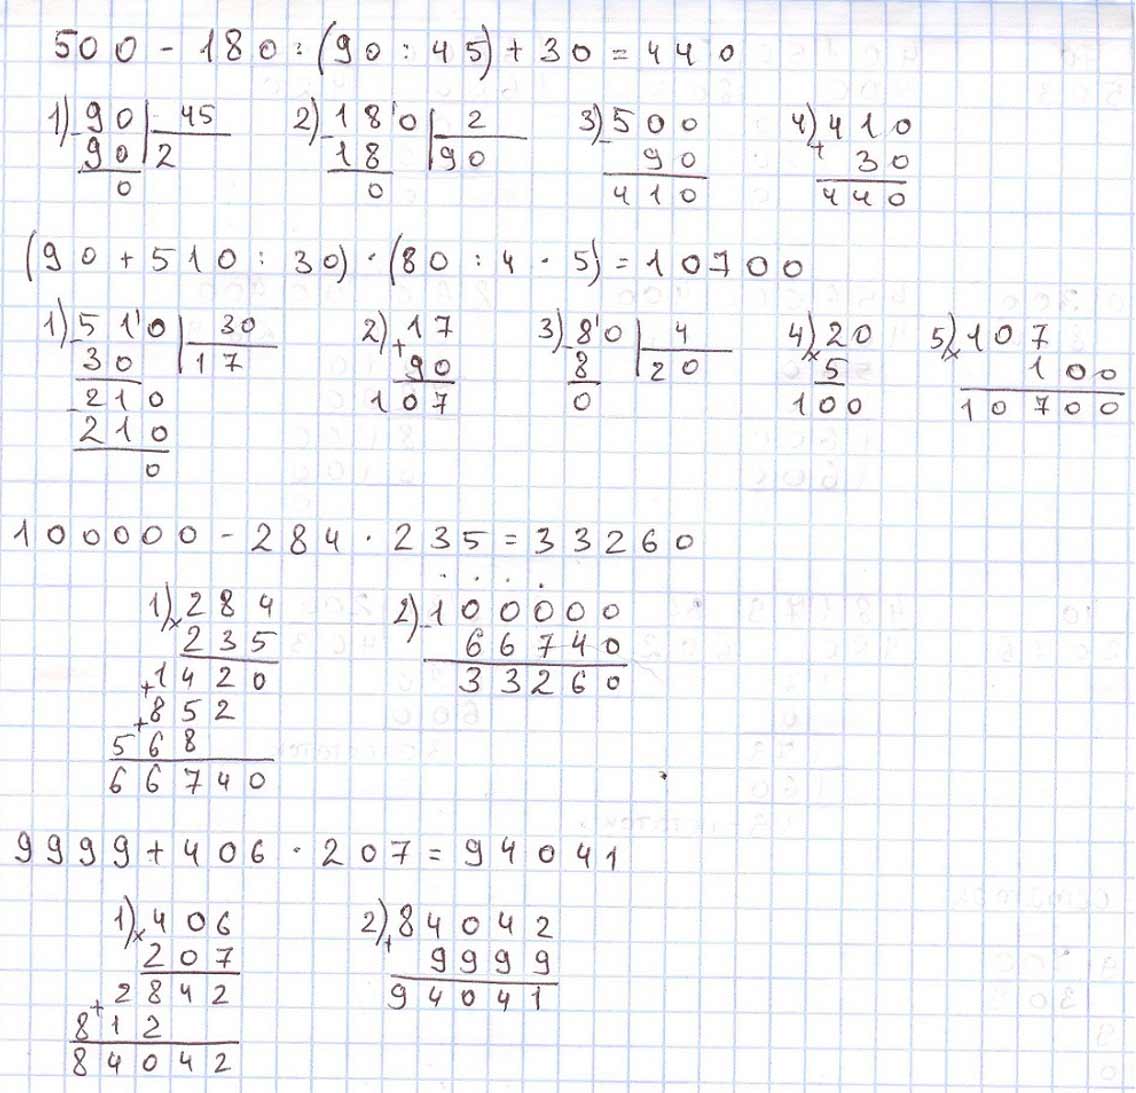 500 - 180 : (90 : 45) + 30 = 440
1) 90 | 45 2) 18'0 | 2 3) 500 4) 410
- 90 | 2 - 18 | 90 - 90 + 30
0 0 410 440
(90 + 510 : 30) · (80 : 4 · 5) = 10700
1) 51'0 | 30 2) 17 3) 8'0 | 4 4) 20 5) 107
- 30 | 17 + 90 - 8 | 20 × 5 × 100
- 210 107 0 100 10700
210
0
100000 - 284 · 235 = 33260
1) 284 2) 100000
× 235 - 66740
1420 33260
+ 852
+ 568
66740
9999 + 406 · 207 = 94041
1) 406 2) 84042
× 207 + 9999
2842 94041
+ 812
84042